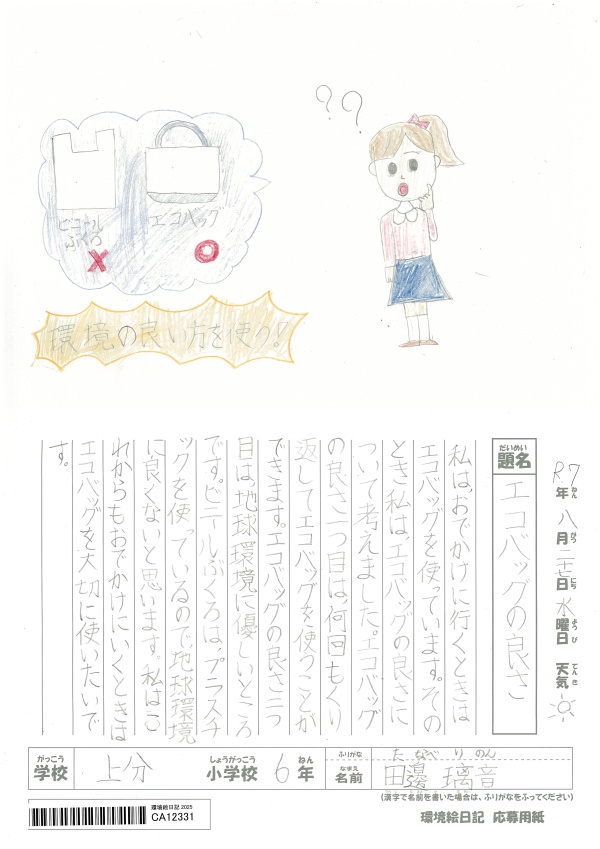 ??
ビニール
ぶくろ
エコバッグ
環境の良い方を使う!
R7年八月二十七日水曜日 天気
ねん がつ にち ようび てんき
だいめい
題名
エコバッグの良さ
私は、おでかけに行くときは
エコバッグを使っています。その
とき私は、エコバッグの良さに
ついて考えました。エコバッグ
の良さ一つ目は、何回もくり
返してエコバッグを使うことが
できます。エコバッグの良さ二つ
目は、地球環境に優しいところ
です。ビニールぶくろは、プラスチ
ックを使っているので、地球環境
に良くないと思います。私はこ
れからもおでかけにいくときは
エコバッグを大切に使いたいで
す。
がっこう しょうがっこう ねん
学校 上分 小学校 6年
ふりがな たなべ りのん
なまえ
名前 田邊 璃音
(漢字で名前を書いた場合は、ふりがなをふってください)
環境絵日記 応募用紙
環境絵日記 2025
CA12331